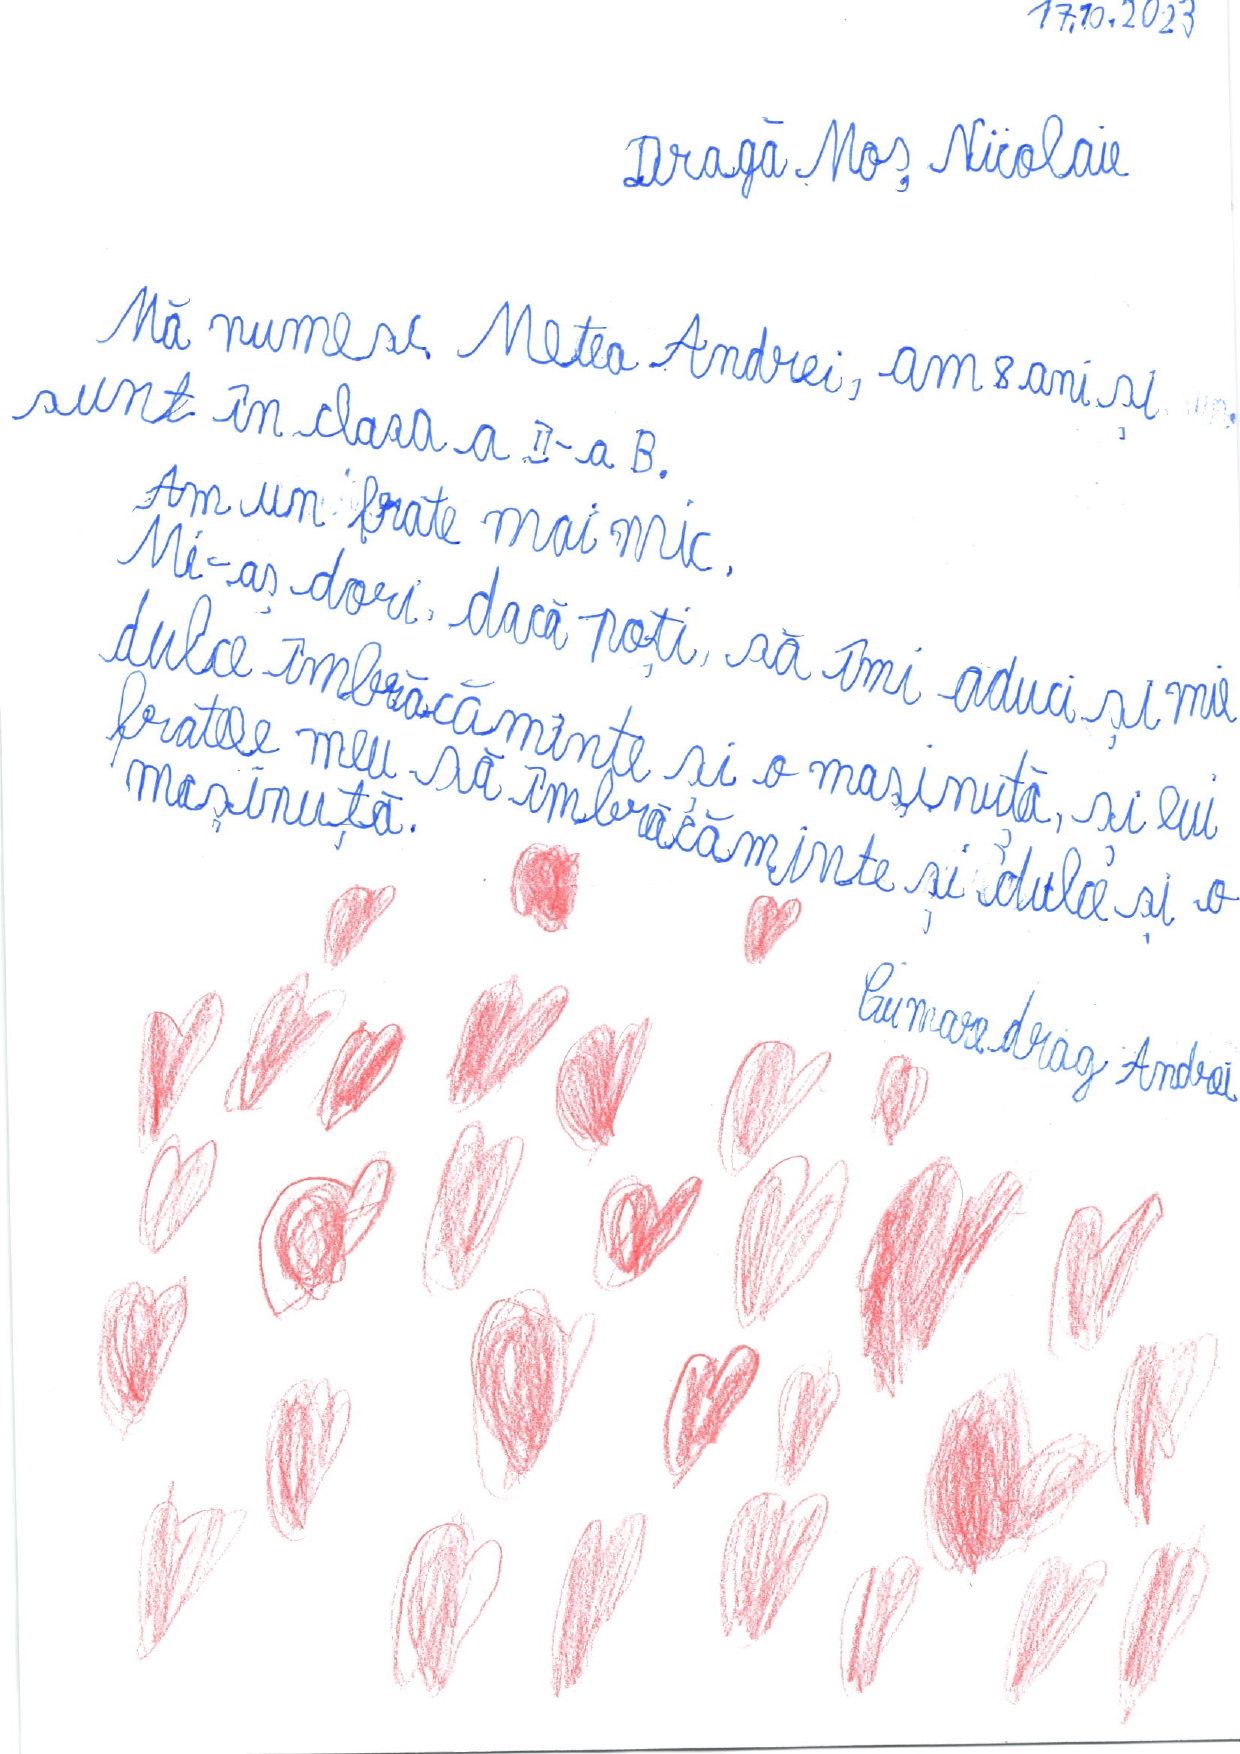 17.10.2023
Dragă Moș Nicolaie
Mă numesc Metea Andrei, am 8 ani și
sunt în clasa a II-a B.
Am un frate mai mic.
Mi-aș dori, dacă poți, să îmi aduci și mie
dulce îmbrăcăminte și o mașinuță, și lui
fratele meu să îmbrăcăminte și dulce și o
mașinuță.
Cu mare drag Andrei